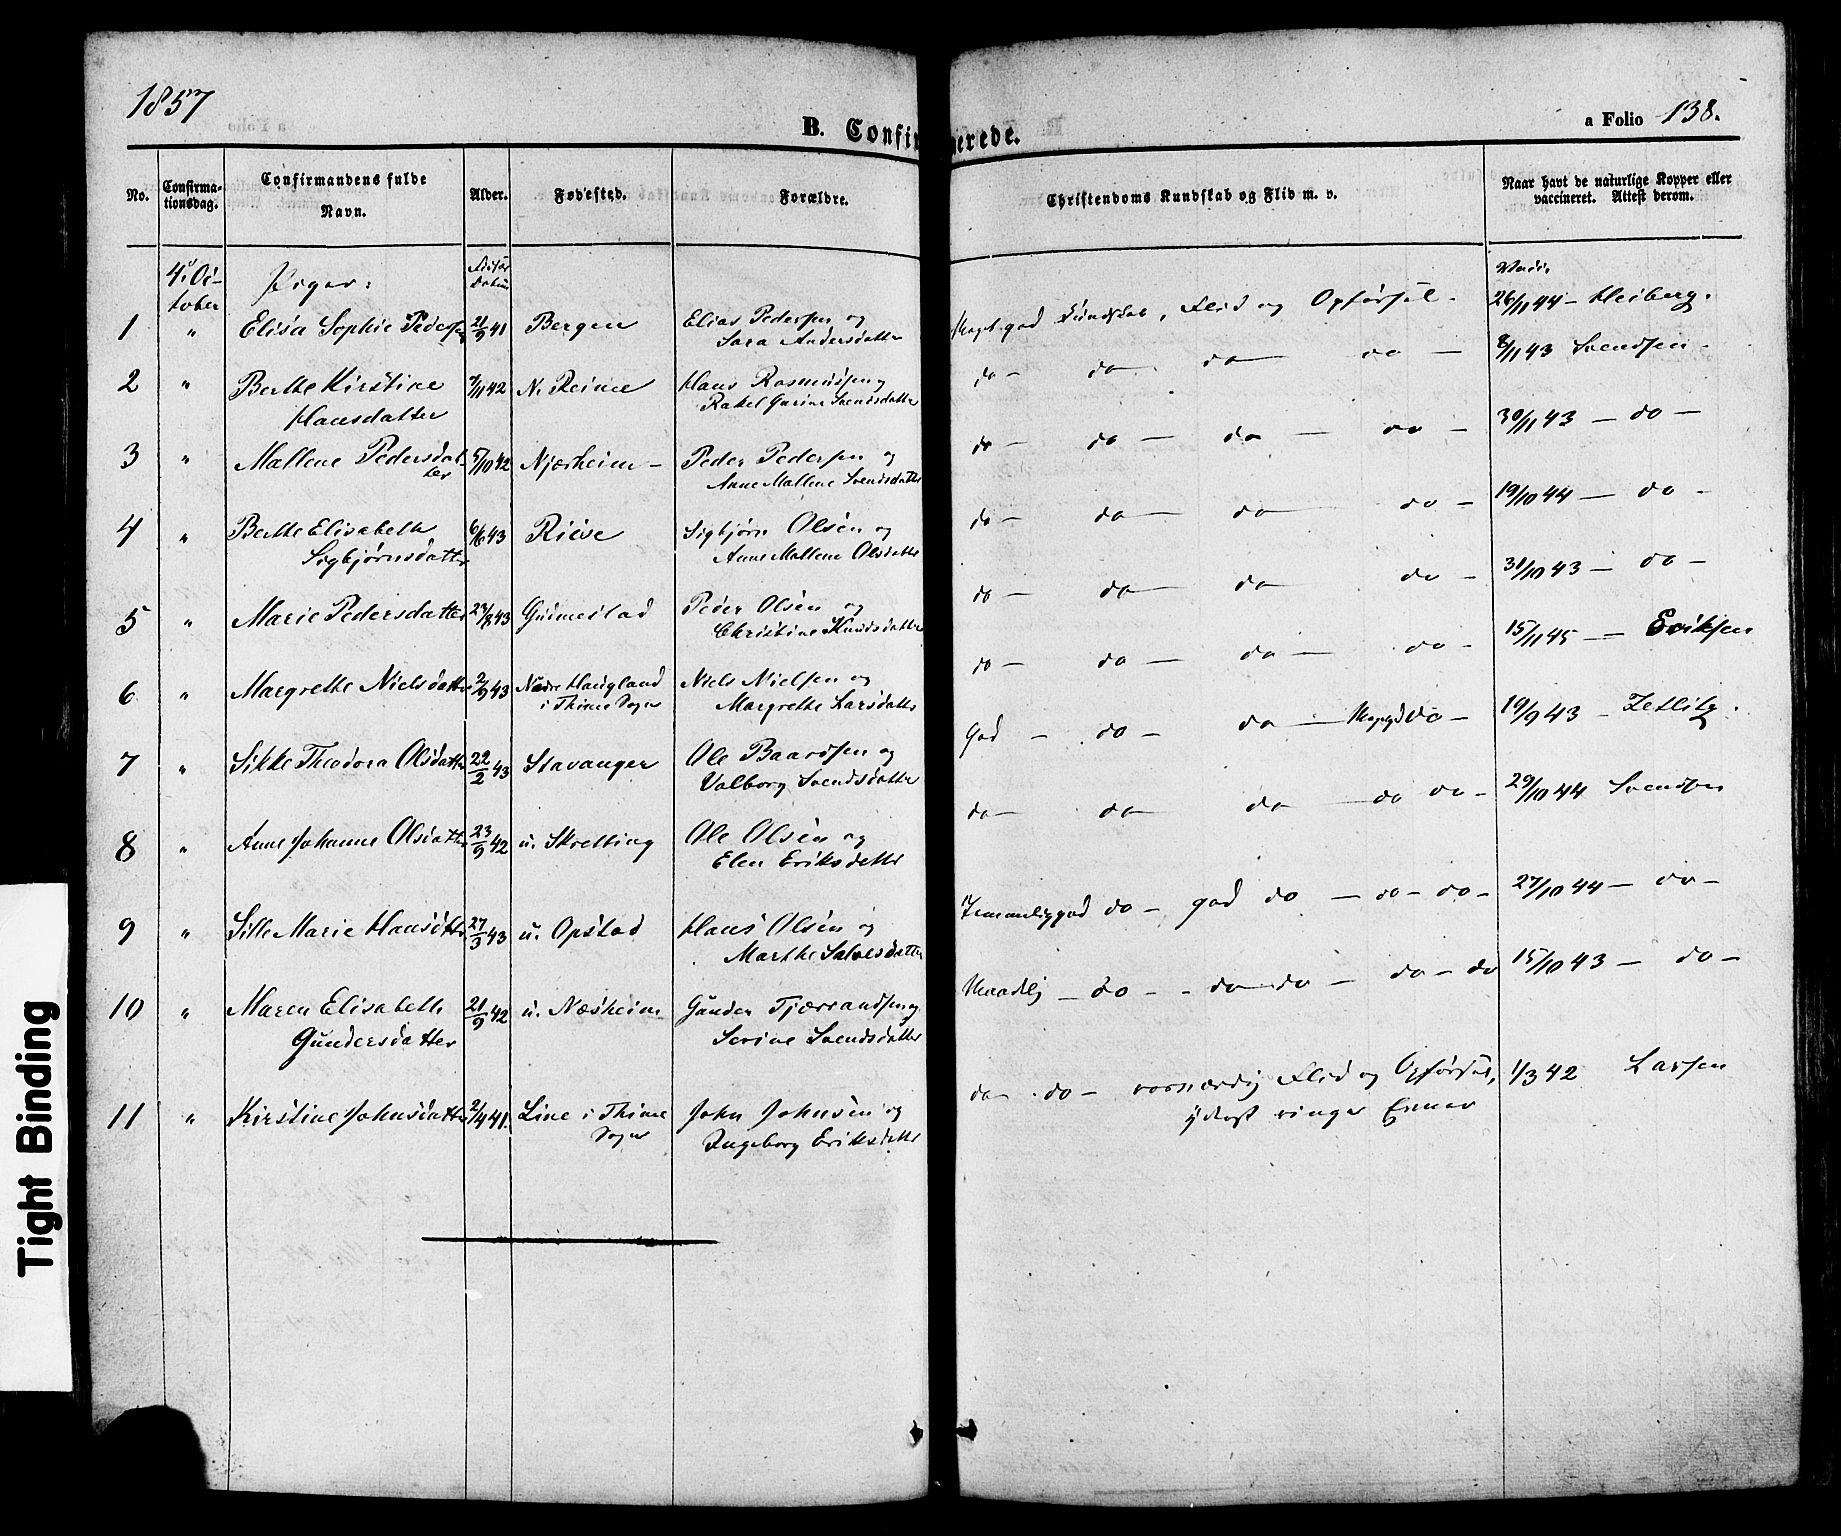 1857
B. Confirmerede.
a Folio 138.
No.
Confirma-
tionsdag.
Confirmandens fulde
Navn.
Alder.
Fødested.
Forældre.
Christendoms Kundskab og Flid m. v.
Naar havt de naturlige Kopper eller
vaccineret. Attest derom.
4. Oc-
tober
Piger:
1 " Elisa Sophie Pedersen 21/9 41 Bergen Elias Pedersen og
Sara Andersdatter
Meget god Kundskab, Flid og Opførsel. 26/11 44 - Heiberg.
2 " Berthe Kirstine 7/11 42 N. Reime Hans Rasmussen og
Hansdatter Rakel Gurine Svendsdatter
do - do do - do - 8/11 43 Svendsen -
3 " Mallene Pedersdat- 5/10 42 Njærheim - Peder Pedersen og
ter Anne Mallene Svendsdatter
do - do - do - do - 30/11 43 - do -
4 " Berthe Elisabeth 6/6 43 Riise Sigbjørn Olsen og
Sigbjørnsdatter Anne Mallene Olsdatter
do - do - do - do - 19/10 44 - do -
5 " Marie Pedersdatter 23/8 43 Gudmestad Peder Olsen og
Christine Knudsdatter
do - do - do - do - 31/10 43 - do -
6 " Margrethe Nielsdatter 2/9 43 Nedre Haugland Niels Nielsen og
i Thime Sogn Margrethe Larsdatter
do - do - do - do - 15/11 45 - Eriksen
7 " Sikke Theodora Olsdatter 22/2 43 Stavanger Ole Baardsen og
Valborg Svendsdatter
God - do - do - Meget god do - 19/9 43 - Zetlitz.
8 " Anne Johanne Olsdatter 23/9 42 u. Skretting Ole Olsen og
Elen Eriksdatter
do - do - do - do do - 29/10 44 Svendsen
9 " Sille Marie Hansdatter 27/3 43 u. Opstad Hans Olsen og
Marthe Salvesdatter
Temmelig god do - god do - do - do - 27/10 44 - do -
10 " Maren Elisabeth 21/9 42 u. Næsheim Gunder Tjærrandsen og
Gundersdatter Serine Svendsdatter
Maadelig - do - - do - do - do - do 15/10 43 - do -
11 " Kirstine Johnsdatter 2/4 41. Line i Thime John Johnsen og
Sogn Ingeborg Eriksdatter
do - do - roesværdig Flid og Opførsel, 1/3 42 Larsen
yderst ringe Evner
Tight Binding